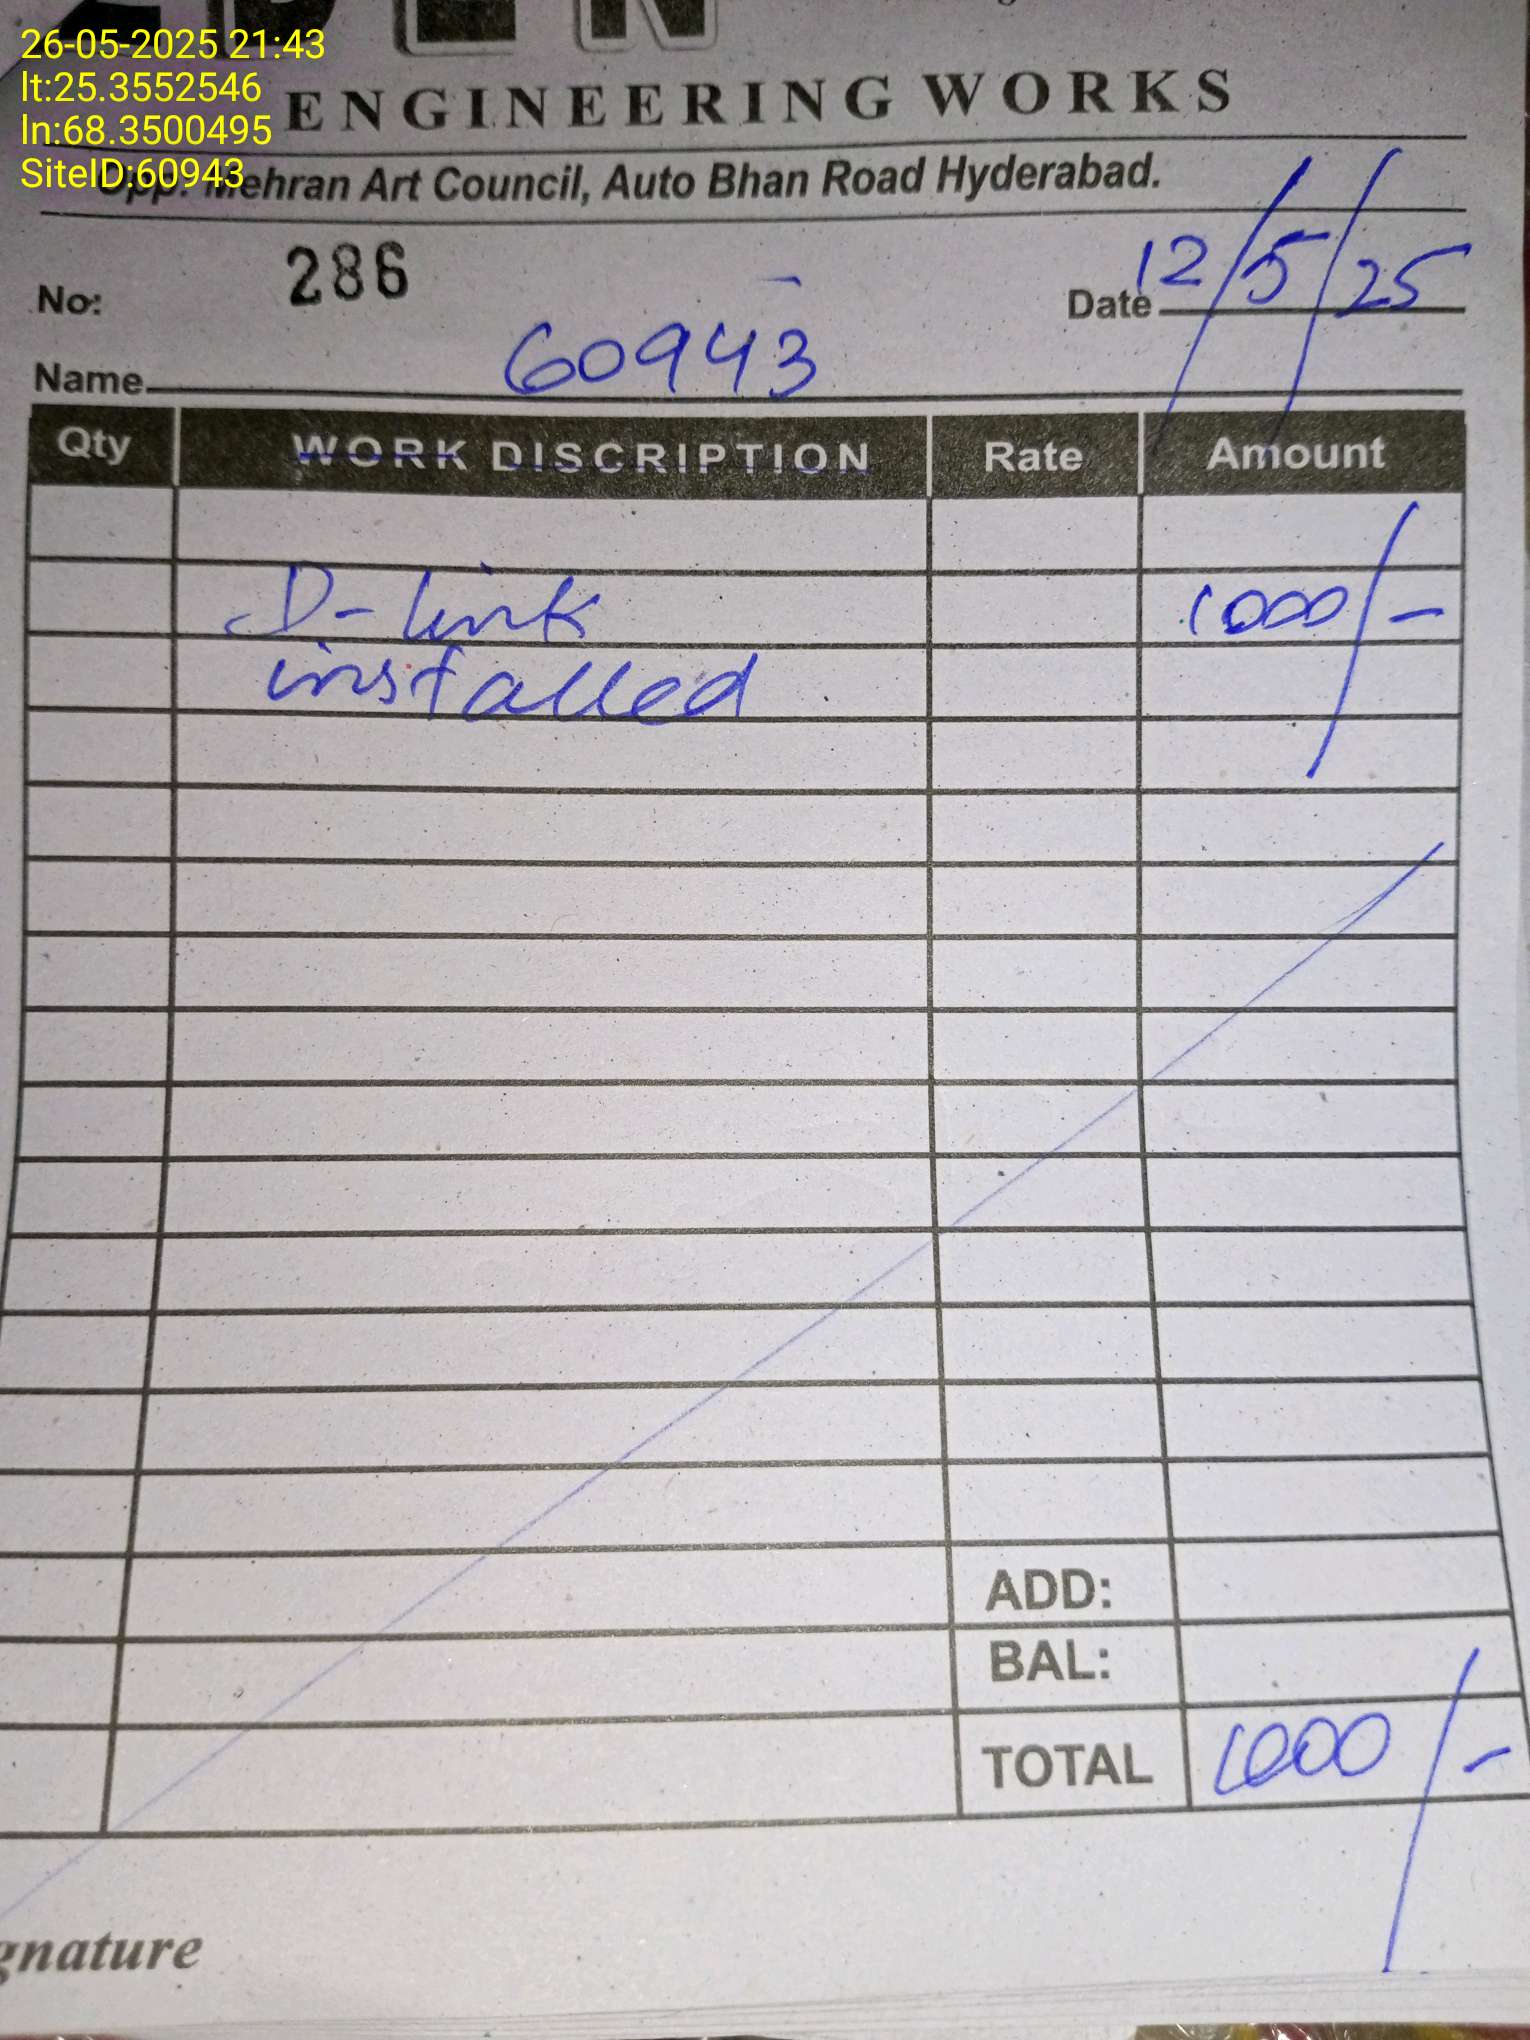 26-05-2025 21:43
lt:25.3552546
ln:68.3500495
SiteID:60943
ENGINEERING WORKS
Opp: Mehran Art Council, Auto Bhan Road Hyderabad.
No: 286
Date 12/5/25
Name 60943
Qty WORK DISCRIPTION Rate Amount
D-link 1000/-
installed
ADD:
BAL:
TOTAL 1000/-
gnature